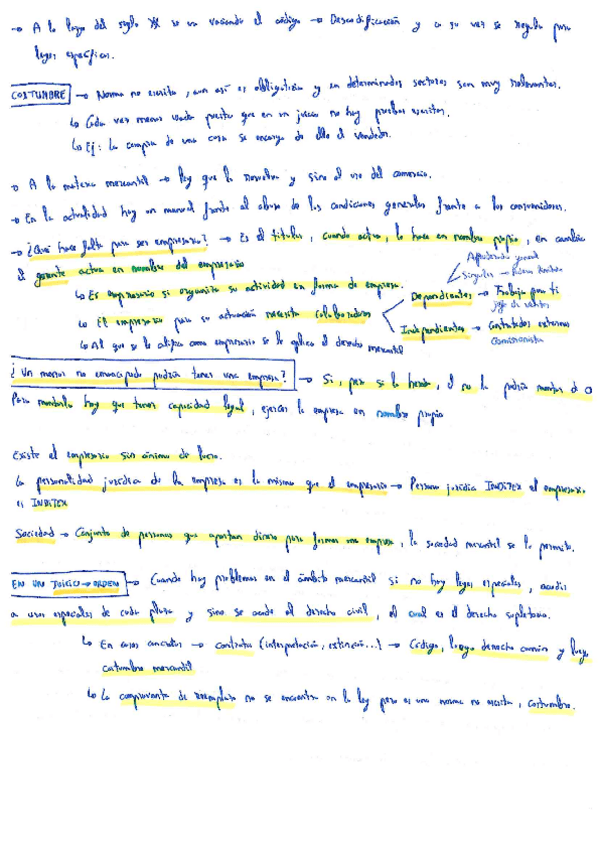 → A lo largo del siglo XX se va vaciando el código → Descodificación y a su vez se regula por
leyes específicas.
COSTUMBRE → Norma no escrita, aun así es obligatoria y en determinados sectores son muy relevantes.
↳ Cada vez menos usada puesto que en un juicio no hay pruebas escritas.
↳ Ej: La compra de una cosa se encarga de ella el vendedor.
→ A la materia mercantil → ley que lo resuelva y sino al uso del comercio.
→ En la actualidad hay un manual frente al abuso de las condiciones generales frente a los consumidores.
→ ¿Qué hace falta para ser empresario? → Es el titular, cuando actúa, lo hace en nombre propio, en cambio
el gerente actúa en nombre del empresario
Apoderado general
Singular →
↳ Es empresario si organiza su actividad en forma de empresa.
Dependientes → Trabaja para ti
jefe de ventas
↳ El empresario para su actuación necesita colaboradores
Independientes → Contratados externos
comisionista
↳ Al que se le califica como empresario se le aplica el derecho mercantil
¿Un menor no emancipado podría tener una empresa? → Si, pero si la hereda, él no la podría
Para hay que tener capacidad legal, ejercer la empresa en nombre propio
Existe el empresario sin ánimo de lucro.
La personalidad jurídica de la empresa es la misma que el empresario → Persona jurídica INDITEX el empresario
es INDITEX
Sociedad → Conjunto de personas que aportan dinero para formar una empresa, la sociedad mercantil se lo permite.
EN UN JUICIO → ORDEN → Cuando hay problemas en el ámbito mercantil si no hay leyes especiales, acudir
a usos especiales de cada plaza y sino se acude al derecho civil, el cual es el derecho supletorio.
↳ En casos concretos → contrato (interpretación, extinción...) → Código, luego derecho común y luego
costumbre mercantil
↳ La compraventa de no se encuentra en la ley pero es una norma no escrita, costumbre.